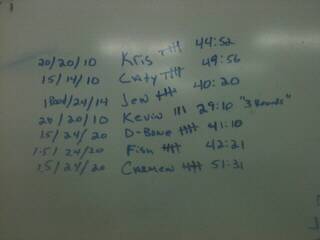 20/20/10 Kris 44:52
15/14/10 Cristy 49:56
1 Pood/24/14 Jen 40:20
20/20/10 Kevin III 29:10 "3 Rounds"
15/24/20 D-Bone 41:10
1.5/24/20 Fish 42:21
1.5/24/20 Carmen 51:31